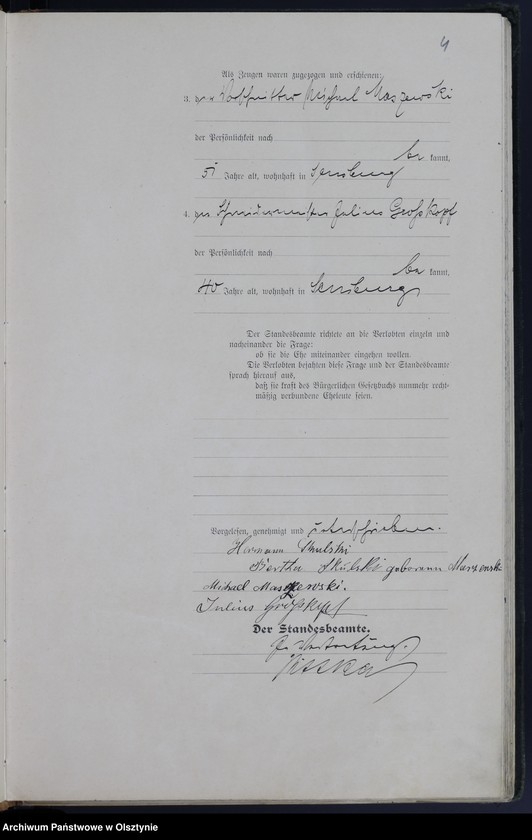 4
Als Zeugen waren zugezogen und erschienen:
3. der Michael Maszewski
der Persönlichkeit nach
be kannt,
51 Jahre alt, wohnhaft in Sensburg
4. der Schneidermeister Julius Großkopf
der Persönlichkeit nach
be kannt,
40 Jahre alt, wohnhaft in Sensburg
Der Standesbeamte richtete an die Verlobten einzeln und
nacheinander die Frage:
ob sie die Ehe miteinander eingehen wollen.
Die Verlobten bejahten diese Frage und der Standesbeamte
sprach hierauf aus,
daß sie kraft des Bürgerlichen Gesetzbuchs nunmehr recht-
mäßig verbundene Eheleute seien.
Vorgelesen, genehmigt und unterschrieben.
Hermann Skulski
Bertha Skulski geborene
Michael Maszewski.
Julius Großkopf
Der Standesbeamte.
In Vertretung.
Archiwum Państwowe w Olsztynie